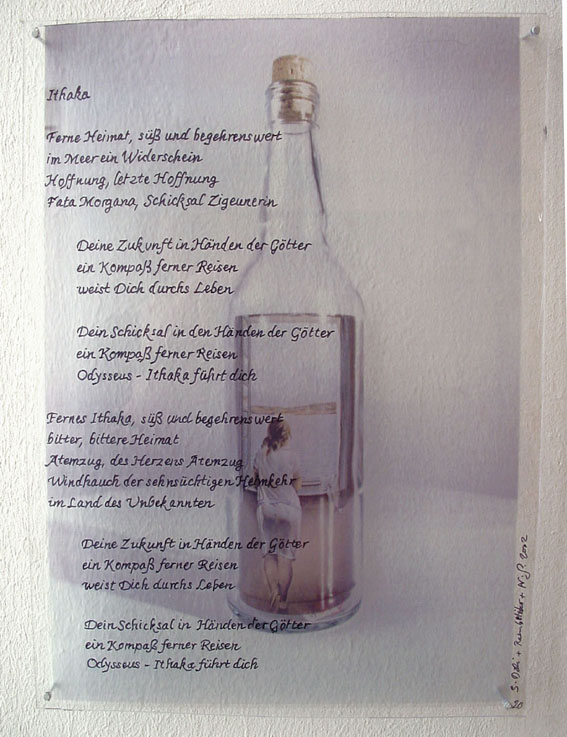 Ithaka
Ferne Heimat, süß und begehrenswert
im Meer ein Widerschein
Hoffnung, letzte Hoffnung
Fata Morgana, Schicksal Zigeunerin
Deine Zukunft in Händen der Götter
ein Kompaß ferner Reisen
weist Dich durchs Leben
Dein Schicksal in den Händen der Götter
ein Kompaß ferner Reisen
Odysseus - Ithaka führt dich
Fernes Ithaka, süß und begehrenswert
bitter, bittere Heimat
Atemzug, des Herzens Atemzug
Windhauch der sehnsüchtigen Heimkehr
im Land des Unbekannten
Deine Zukunft in Händen der Götter
ein Kompaß ferner Reisen
weist Dich durchs Leben
Dein Schicksal in Händen der Götter
ein Kompaß ferner Reisen
Odysseus - Ithaka führt dich
2002